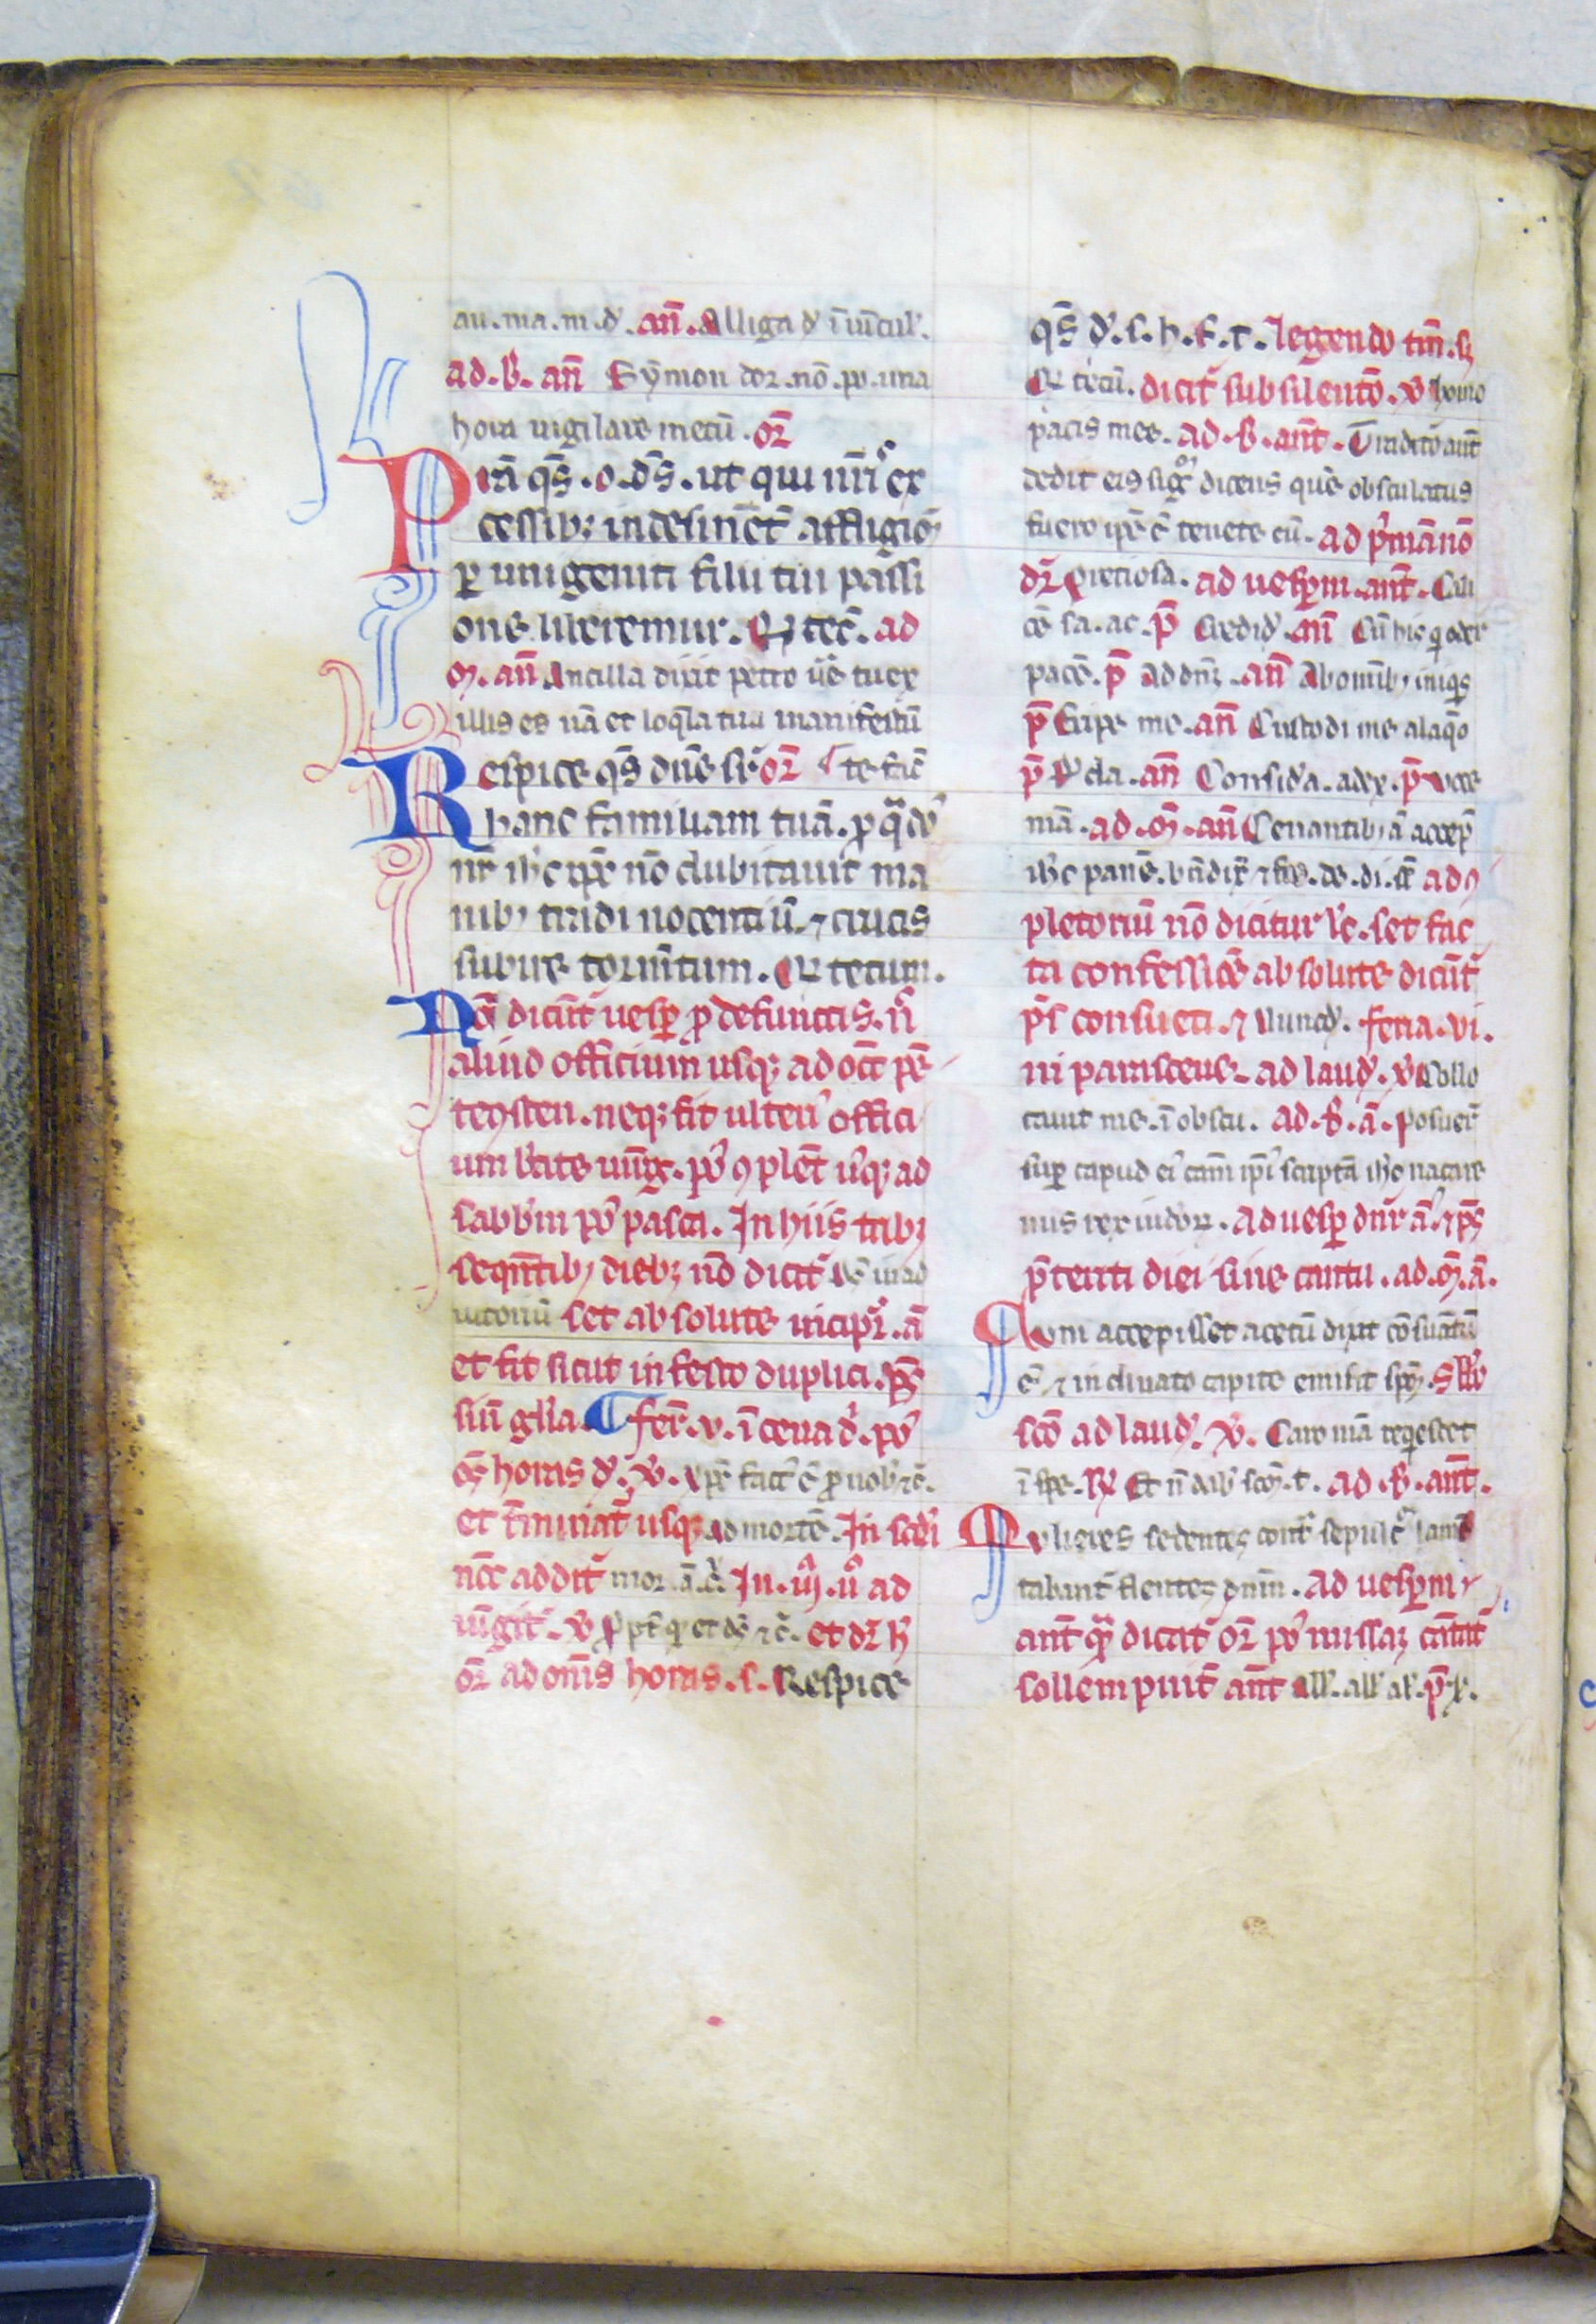 au . ma . m . d̕ . an̄ . Alliga d̕ ī uīcul̕ .
ad . b̕ . an̄ Symon dor . nō . po . una
hora uigilare mecū . or̄
Prā qs̄ . o . ds̄ . ut qui nr̄is ex
cessib; indesinēt̄ affligim̄
ꝑ unigeniti filii tui passi
one liberemur . Qi tec̄ . ad
m̄ . an̄ Ancilla dixit petro u̕e tu ex
illis es nā et loq̄la tua manifestū
Respice qs̄ dn̄e sr̄ or̄ te fac̄
hanc familiam tuā . ꝓ qͣ do̕
nr̄ ih̄c xp̄c nō dubitauit ma
nib; tradi nocentiū . ⁊ crucis
subire tormētum . Qi tecum .
Nō dicūt̄ uesꝑ ꝓ defunctis . n̕
aliud officium usq; ad oct̄ pē
tecosten . neq; fit ulteri̕ offici
um bͣte uirgīs . po̕ ꝯplet̄ usq; ad
sabb̄m po̕ pasca . In hiis trib;
seqūtib; dieb; nō dicit̄ ds̄ in ad
iutoriū set absolute incipit̄ . ā
et fit sicut in festo duplici . ps̄
siū gl̄ia . ¶ fer̄ . v . ī cena d̕ . po̕
om̄s horas d̕ . v̕ . xp̄c fact̕ ē ꝓ nob̕ ⁊c̄ .
et t̄minat̄ usq; ad mortē . In scd̕i
noc̄ addit̄ mor . ā . c̕ . In . iij . n̕ ad
iūgit̄ . v̕ ꝓpt̄ qͥ et ds̄ ⁊c̄ . et dr̄ h̕
or̄ ad om̄s horas . s . Respice
qs̄ d̕ . s . h . f . t . legendo tm̄ . s;
Qi tecū . dicit̄ sub silentō . v̕ homo
pacis mee . ad . b̕ . ant̄ . Tradito aut̄
dedit eis sigͫ dicens quē obsculatus
fuero ip̄e ē tenete eū . ad pͥmā nō
dr̄ Pretiosa . ad uesꝑm . ant̄ . Cali
cē sa . ac . p̄ Credid̕ . an̄ Cū hiis qͥ oder
pacē . p̄ ad dn̄; . an̄ Ab omīb; iniqͥs
p̄ Eripe me . an̄ Custodi me a laq̄o
p̄ dn̄e cla . an̄ Consid̕a . ad ex . p̄ uoce
mā . ad . m̄ . an̄ Cenantib; ā accep̄
ih̄c panē . bn̄dix̄ ⁊ fre . de . di . ad ꝯ
pletoriū nō dicitur lc̄ . set fac
ta confessiōe absolute dicūt̄
ps̄ consueti . ⁊ Nuncd̕ . feria . vi .
in parasceue . ad laud̕ . v̕ Collo
cauit me . ī obscu . ad . b̕ . ā . Posuer̄
suꝑ capud ei̕ cam̄ ip̄i̕ scriptā ih̄c nacare
nus rex iudeoꝝ . ad uesꝑ dnr̄ ā ⁊ ps̄
p̄teriti diei sine cantu . ad . m̄ . ā .
Cum accepisset acetū dixit cōsūatū
ē ⁊ inclinato capite emisit spm̄ . Sab̕o
scō ad laud̕ . v̕ . Caro mā reqͥescet
ī spe . R̕ Et n̄ dab̕ scm̄ . t . ad . b̕ . ant̄ .
Mulieres sedentes cont̄ sepulc̄ lamē
tabant̄ flentes dnm̄ . ad uesꝑm
ant̄ qͣm dicat̄ or̄ po̕ missaꝫ cātāt̄
sollempnit̄ ant̄ all̕ . all̕ al̕ . p̄ . x .